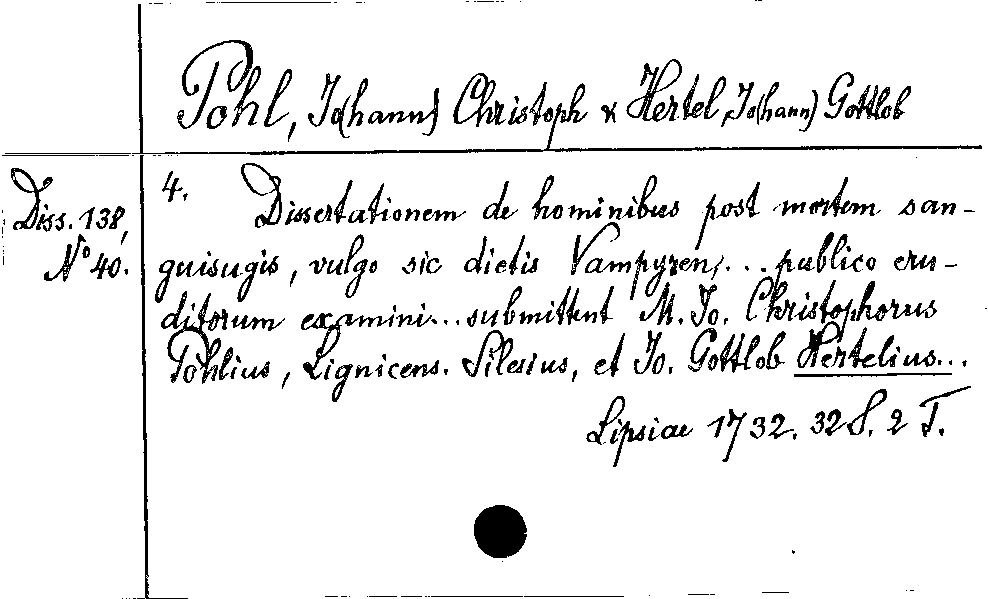 Pohl, Jo(hann) Christoph & Hertel, Jo(hann) Gottlob
Diss. 138,
No 40.
4. Dissertationem de hominibus post mortem san-
guisugis, vulgo sic dictis Vampyren,... publico eru-
ditorum examini... submittent M. Jo. Christophorus
Pohlius, Lignicens. Silesius, et Jo. Gottlob Hertelius...
Lipsiae 1732. 32 S. 2 T.